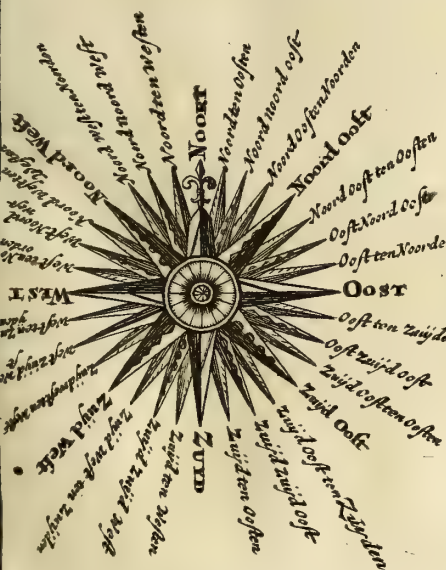 Noort
Noord ten Oosten
Noord noord oost
Noord Oosten Noorden
Noord Oost
Noord Oost ten Oosten
Oost Noord Oost
Oost ten Noorde
Oost
Oost ten Zuijde
Oost Zuijd oost
Zuijd Oosten oosten
Zuijd Oost
Zuijd Oost ten Zuijden
Zuijd Zuijd Oost
Zuijd ten Oosten
Zuyd
Zuijd ten Westen
Zuijd Zuijd West
Zuijd west ten Zuijden
Zuijd West
West Zuijd
West ten
West
West ten
West Noord
Noord West
Noord Westen Noorden
Noord noord West
Noord ten Westen